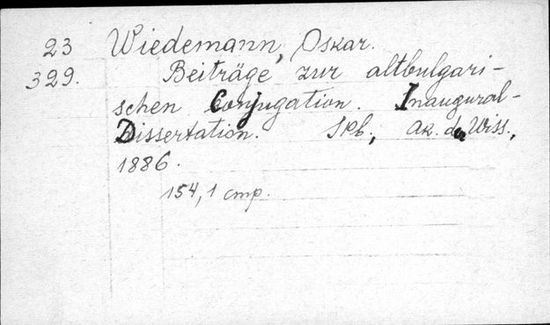 23 Wiedemann, Oskar.
329. Beiträge zur altbulgari-
schen Conjugation. Inaugural-
Dissertation. Spb., Ak. d. Wiss.,
1886.
154, 1 стр.